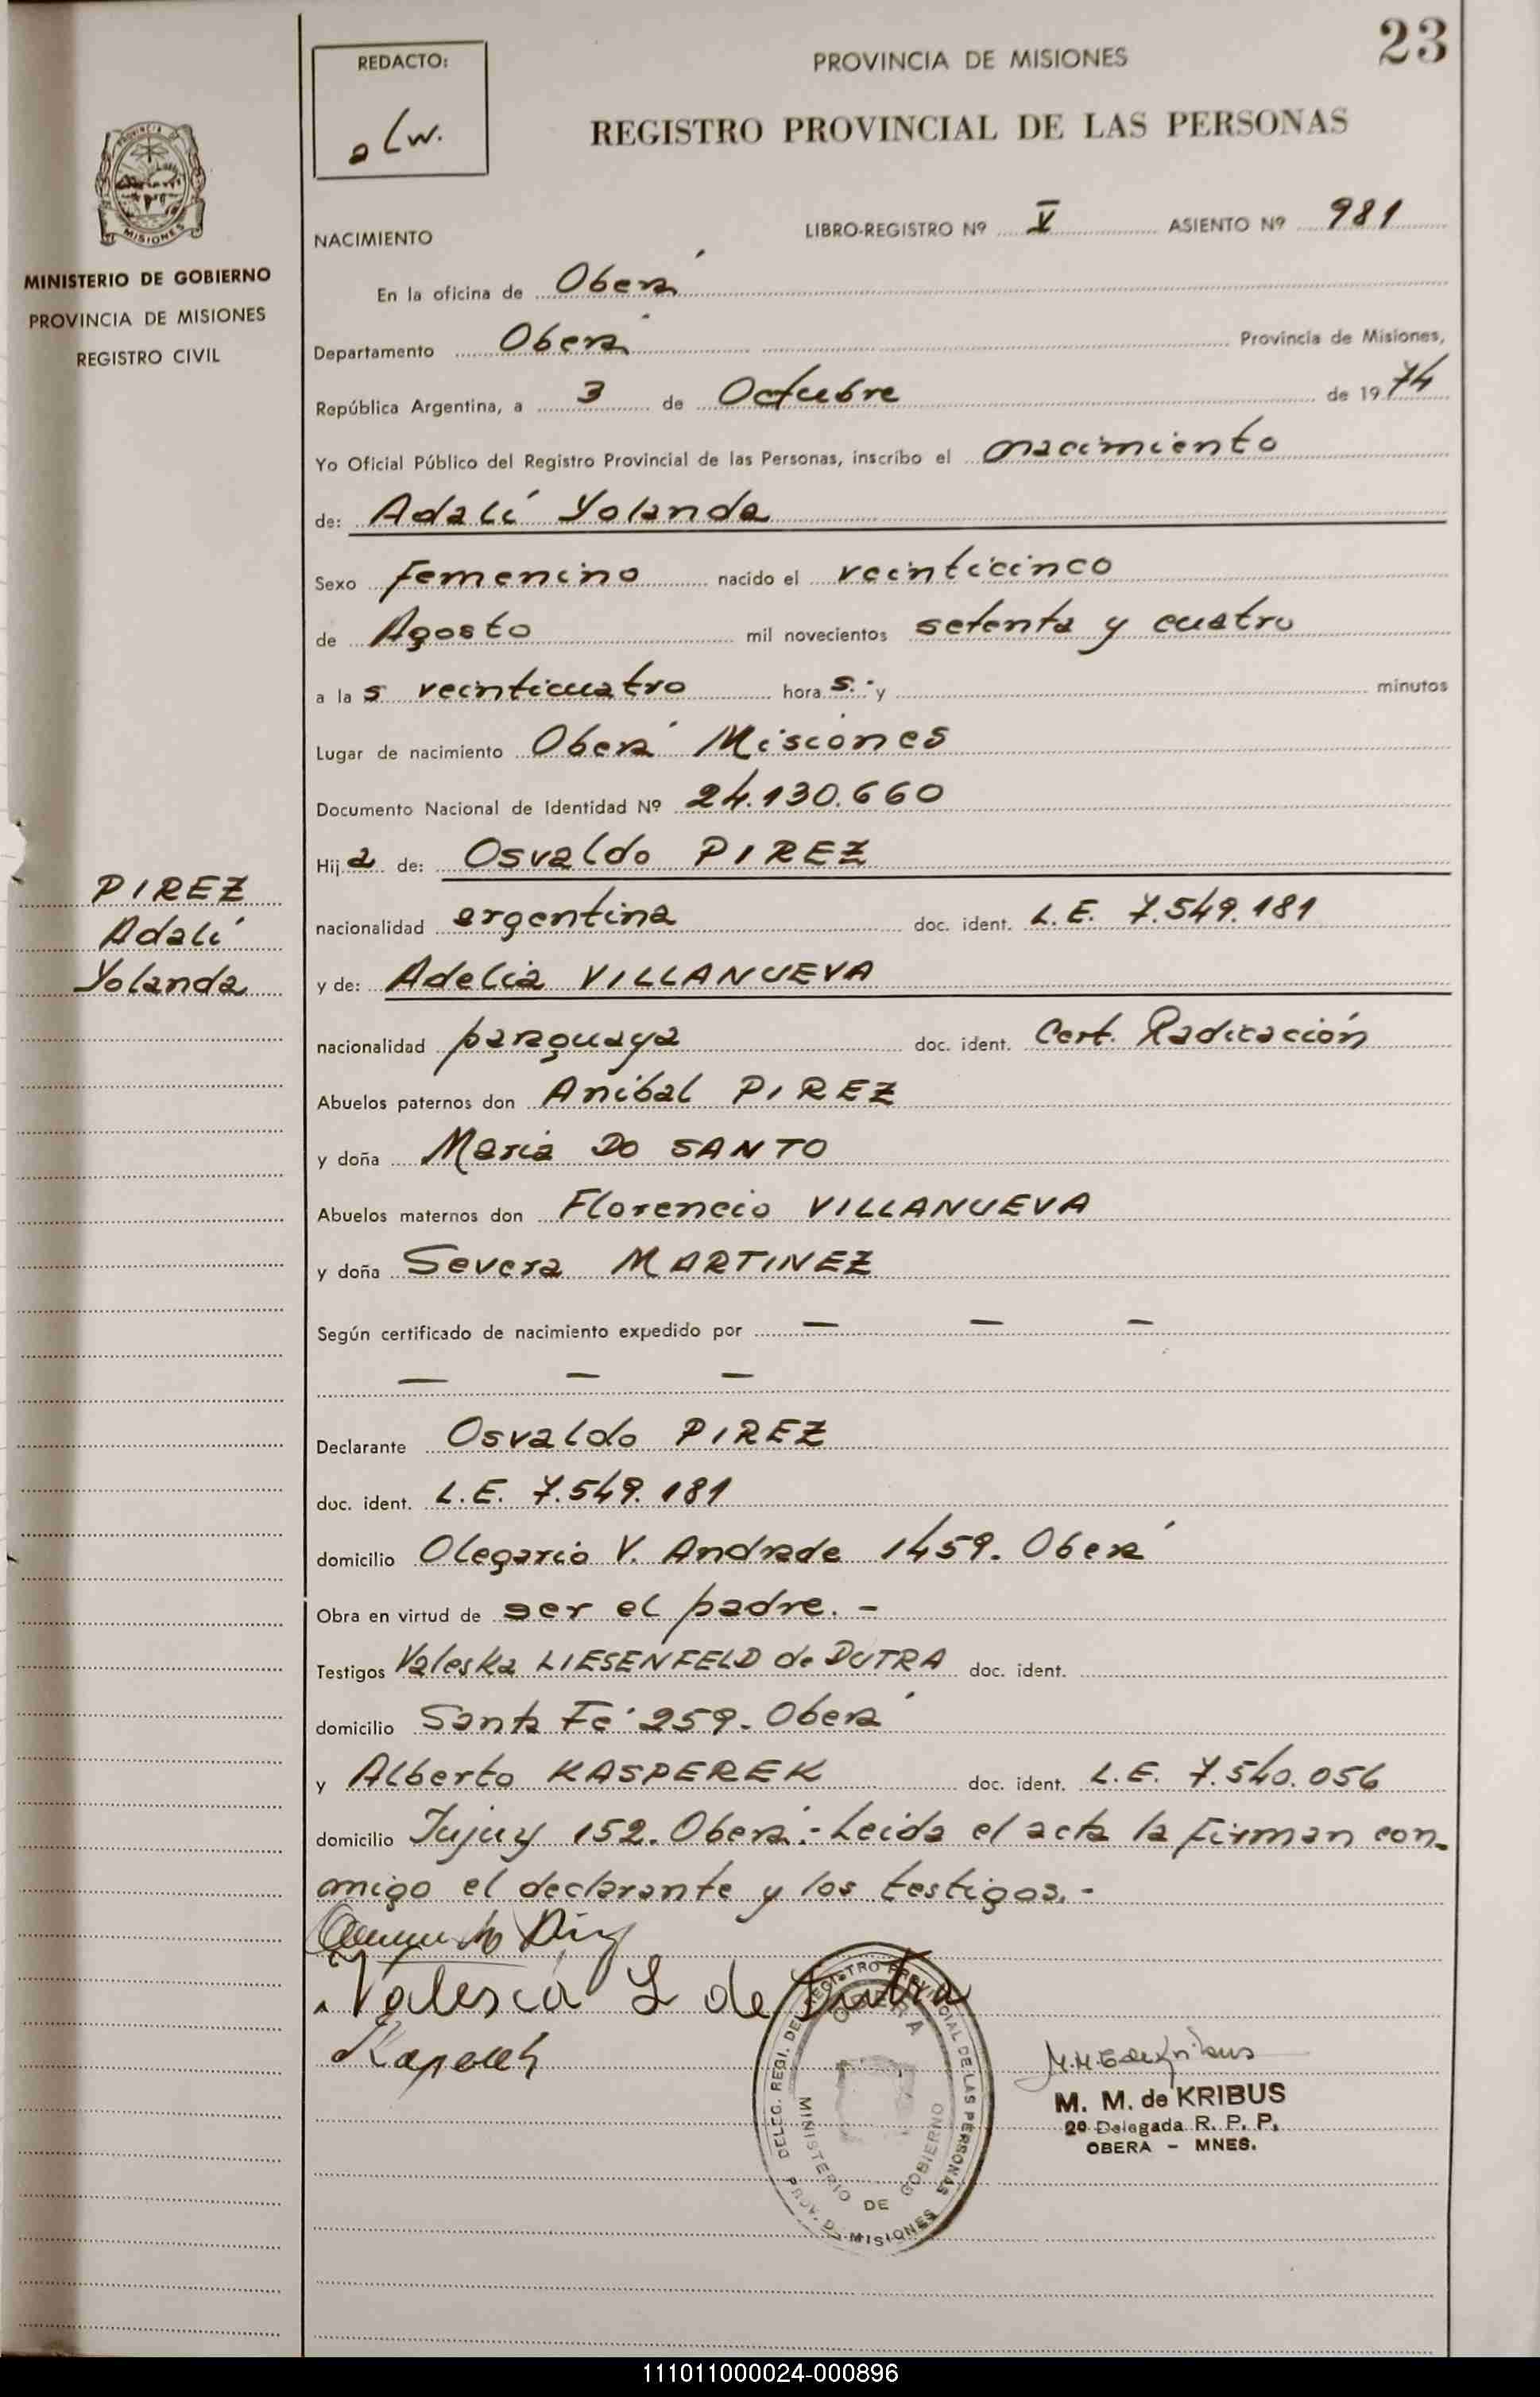 23
REDACTO:
PROVINCIA DE MISIONES
REGISTRO PROVINCIAL DE LAS PERSONAS
PROVINCIA DE
MISIONES
MINISTERIO DE GOBIERNO
PROVINCIA DE MISIONES
REGISTRO CIVIL
NACIMIENTO
LIBRO-REGISTRO Nº V ASIENTO Nº 981
En la oficina de Oberá
Departamento Oberá Provincia de Misiones,
República Argentina, a 3 de Octubre de 1974
Yo Oficial Público del Registro Provincial de las Personas, inscribo el nacimiento
de: Adalí Yolanda
Sexo femenino nacido el veinticinco
de Agosto mil novecientos setenta y cuatro
a las veinticuatro horas.- y minutos
Lugar de nacimiento Oberá Misiones
Documento Nacional de Identidad Nº 24.130.660
Hija de: Osvaldo PIREZ
PIREZ
Adalí
Yolanda
nacionalidad argentina doc. ident. L.E. 7.549.181
y de: Adelia VILLANUEVA
nacionalidad paraguaya doc. ident. Cert. Radicación
Abuelos paternos don Anibal PIREZ
y doña Maria DO SANTO
Abuelos maternos don Florencio VILLANUEVA
y doña Severa MARTINEZ
Según certificado de nacimiento expedido por — — —
— — —
Declarante Osvaldo PIREZ
doc. ident. L.E. 7.549.181
domicilio Olegario V. Andrade 1459. Oberá
Obra en virtud de ser el padre.-
Testigos Valeska LIESENFELD de DUTRA doc. ident.
domicilio Santa Fé 259. Oberá
y Alberto KASPEREK doc. ident. L.E. 7.540.056
domicilio Jujuy 152. Oberá.- Leida el acta la firman con-
migo el declarante y los testigos.-
Valesca L de Dutra
DELEG. REGI. DEL REGISTRO PROVINCIAL DE LAS PERSONAS
OBERA
MINISTERIO DE GOBIERNO
PROV. DE MISIONES
M. M. de KRIBUS
2º Delegada R. P. P.
OBERA - MNES.
111011000024-000896